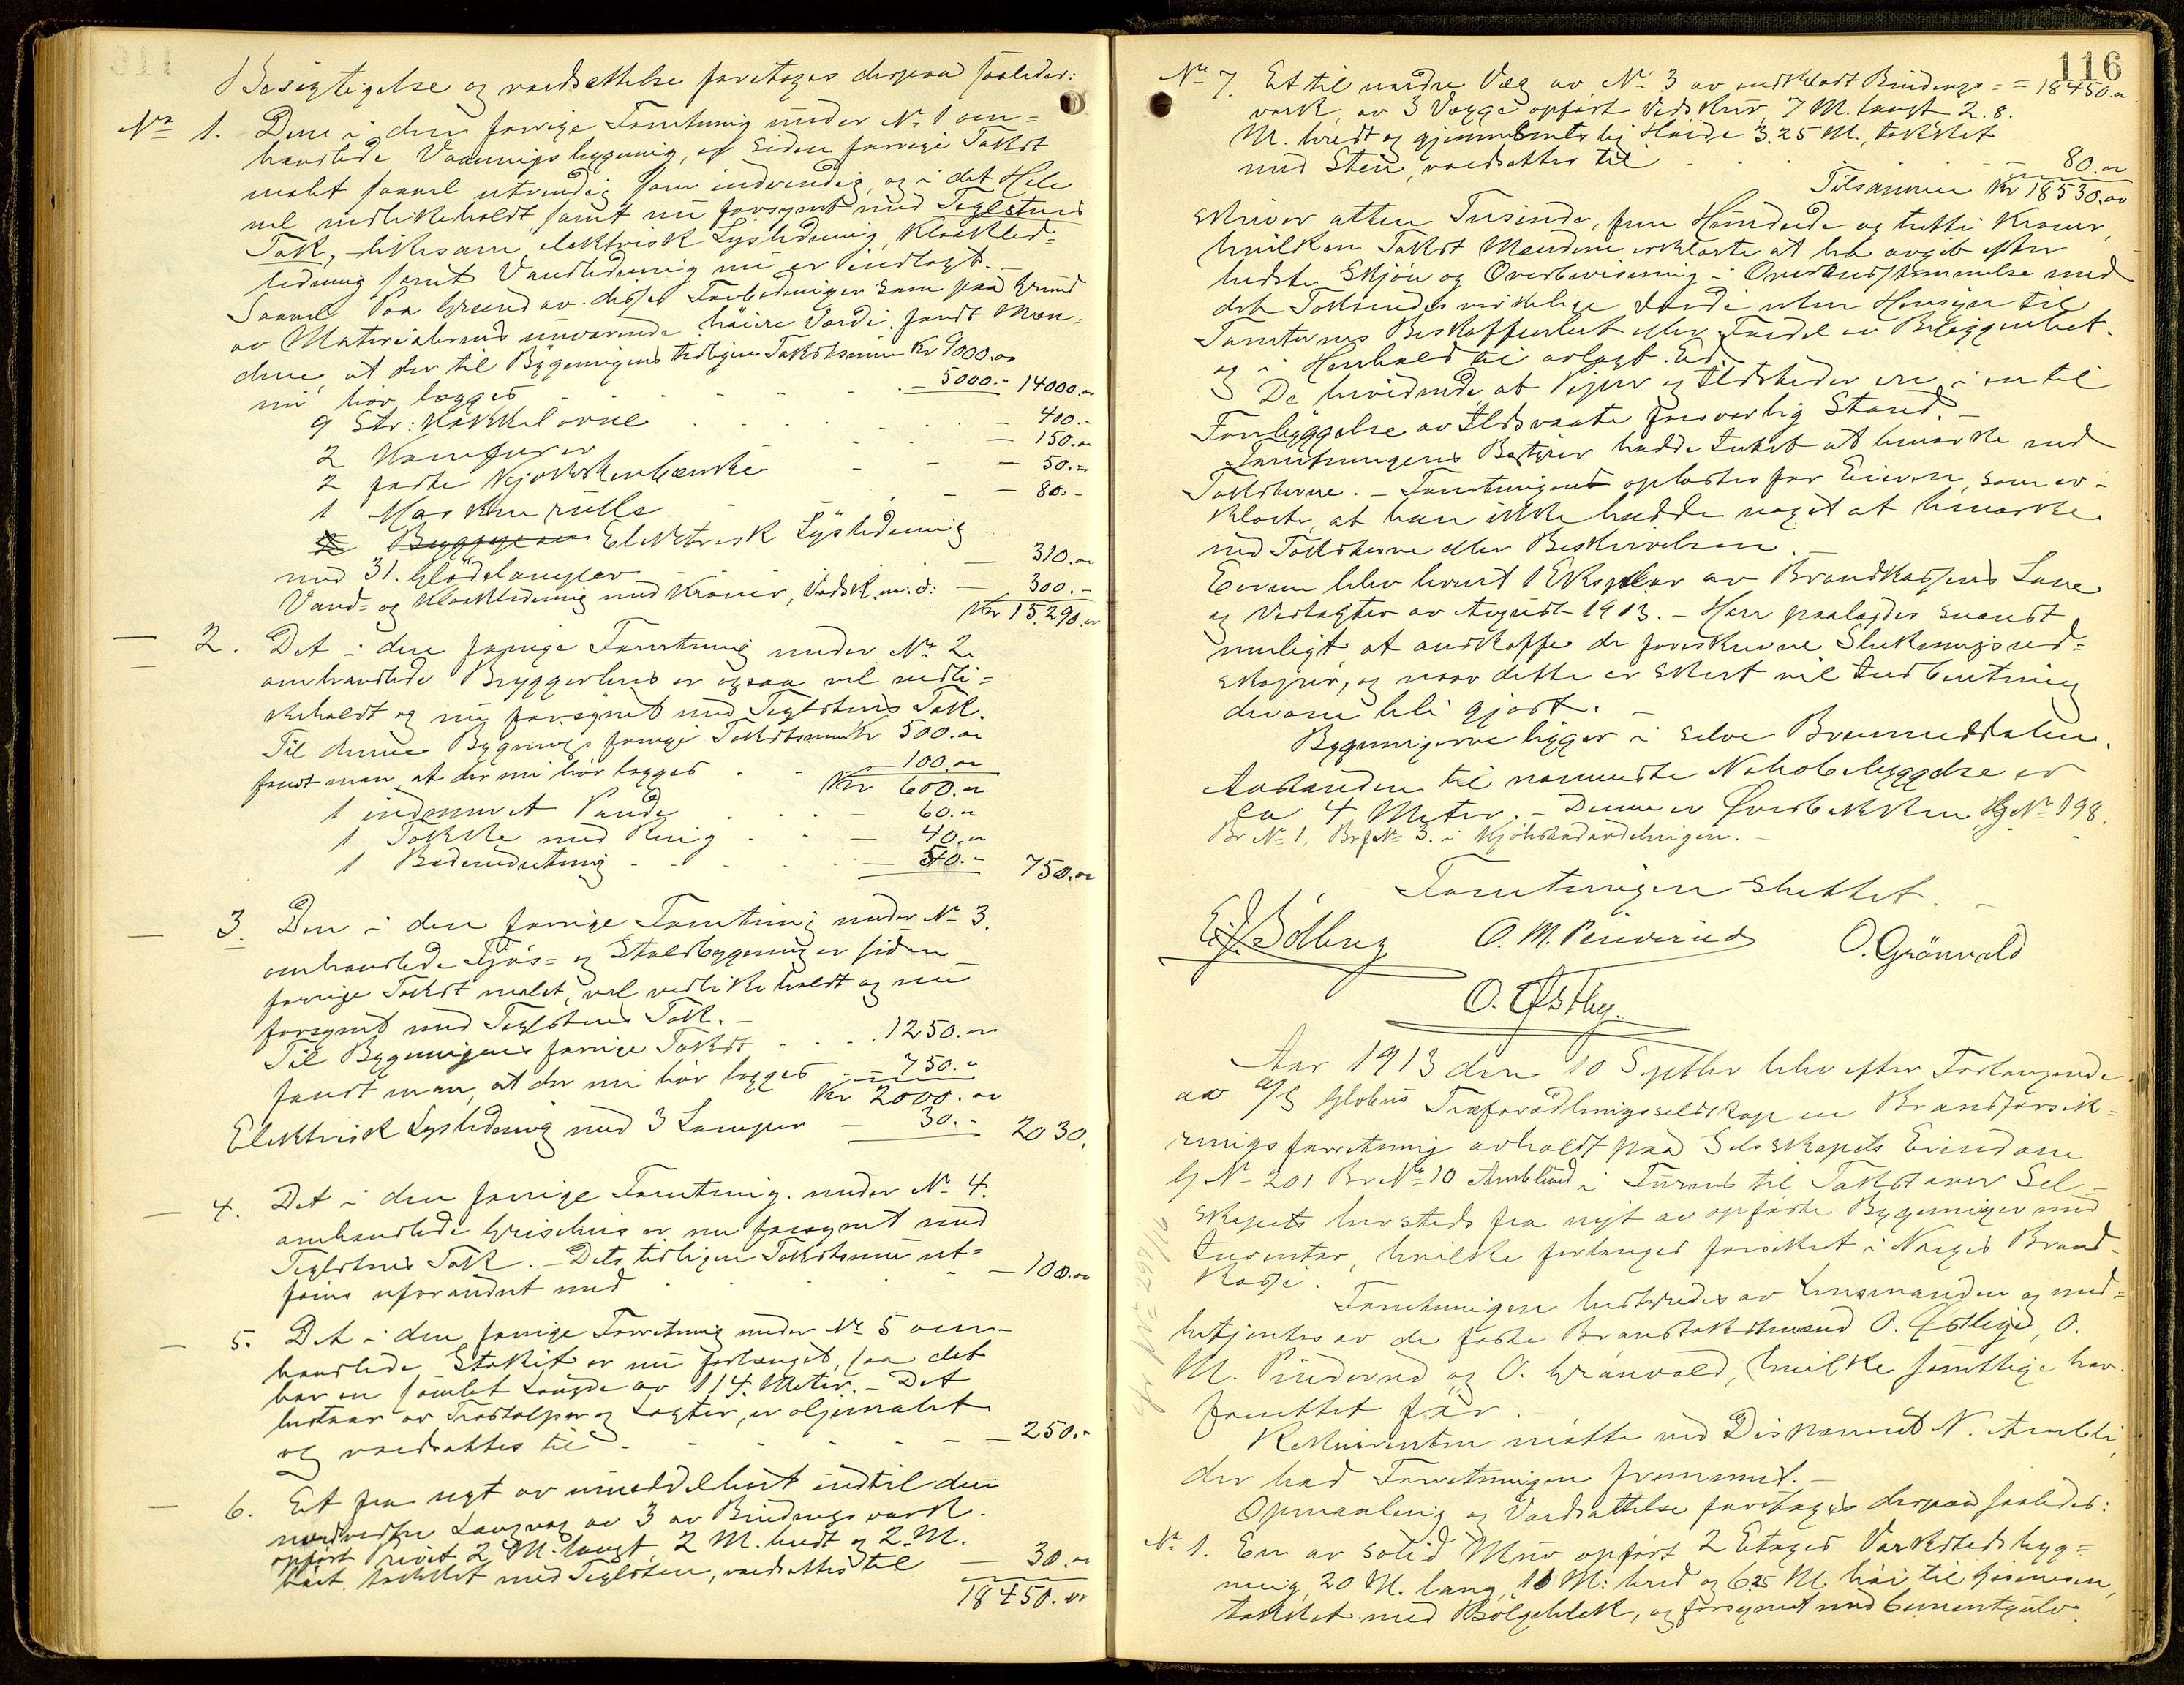 Besigtigelse og værdsættelse foretoges derpaa saaledes:
No 1. Den i den forrige Forretning under No 1 om=
handlede Vaaningsbygning, er siden forrige Takst
malt saavel utvendig som indvendig, og i det Hele
vel vedlikeholdt, samt nu forsynet med Teglstens
Tak, - likesom elektrisk Lysledning, Kloakled=
ledning samt Vandledning nu er indlagt. -
Saavel Paa Grund av disse Forbedringer som paa Grund
av Materialernes nuværende høiere Værdi, fandt Mæn=
dene, at der til Bygningens tidligere Takstsum Kr 9000.00
nu bør lægges - 5000.- 14000.00
9 Str: Kakkelovne - 400.-
2 Komfurer - 150.00
2 faste Kjøkkenbænke - 50.00
1 Maskinrulle - 80.-
Elektrisk Lysledning
med 31. Glødelamper - 310.00
Vand= og Kloakledning med Kraner, Vask m: d: - 300.-
Kr 15.290.00
- 2. Det i den forrige Forretning under No 2
omhandlede Bryggerhus er ogsaa vel vedli=
keholdt og nu forsynet med Teglstens Tak.
Til denne Bygnings forrige Takstsum Kr 500.00
fandt man, at der nu bør lægges - 100.00
Kr 600.00
1 indmuret Pande - 60.00
1 Takke med Ring - 40.00
1 Badeindretning - 50.- 750.00
- 3. Den i den forrige Forretning under No 3.
omhandlede Fjøs= og Staldbygning er siden
forrige Takst malet, vel vedlikeholdt og nu
forsynet med Teglstens Tak. -
Til Bygningens forrige Takst 1250.00
fandt man, at der nu bør lægges - 750.00
Kr 2000.00
Elektrisk Lysledning med 3 Lamper - 30.- 2030.
- 4. Det i den forrige Forretning under No 4.
omhandlede Grisehus er nu forsynet med
Teglstens Tak. - Dets tidligere Takstsum ut=
føres uforandret med - 100.00
- 5. Det i den forrige Forretning under No 5 om=
handlede Stakit er nu forlænget, saa det
har en samlet Længde av 114. Meter. - Det
bestaar av Træstolper og Lægter, er oljemalet
og værdsættes til - 250.-
- 6. Et fra nyt av umiddelbart indtil den
nordvestre Langvæg av 3 av Bindingsværk
opført Privet 2 M. langt, 2 M. bredt og 2 M.
høit, tækket med Teglsten, værdsættes til - 30.00
18450.00
116
No 7. Et til nordre Væg av No 3 av bordklædt Bindings= = 18450.00
værk, av 3 Vægge opført Vedskur, 7 M. langt 2.8.
M. bredt og gjennemsnitlig Høide 3.25 M., tækket
med Sten, værdsættes til - 80.00
Tilsammen Kr 18530.00
skriver atten Tusinde, fem Hundrede og tretti Kroner,
hvilken Takst Mændene erklærte at ha avgit efter
bedste Skjøn og Overbevisning i Overensstemmelse med
det Takseredes virkelige Værdi uten Hensyn til
Tomternes Beskaffenhet eller Fordel av Beliggenhet.
og i Henhold til avlagt Ed.
De bevidnede, at Piper og Ildsteder ere i en til
Forebyggelse av Ildsvaate forsvarlig Stand. -
Forretningens Bestyrer hadde Intet at bemærke ved
Taksterne. - Forretningen oplæstes for Eieren, som er=
klærte, at han ikke hadde noget at bemærke
ved Taksterne eller Beskrivelsen. -
Eieren blev levert 1 Eksplar av Brandkassens Love
og Vedtægter av August 1913. - Han paalagdes snarest
muligt at anskaffe de foreskrevne Sluknings red=
skaper, og naar dette er skeet vil Indberetning
derom bli gjort. -
Bygningerne ligger i selve Brummeddalen.
Avstanden til nærmeste Nabobebyggelse er
ca 4 Meter. - Denne er Øverbakken G No 198.
Br No 1, Brf No 3. i Kjøbstadavdelingen. -
Forretningen sluttet. -
E. Solberg O. M. Pinderud O. Grönvold
O. Østby.
Aar 1913 den 10 Septbr blev efter Forlangende
av A/S Globus Træforædlingsselskap en Brandforsik=
ringsforretning avholdt paa Selskapets Eiendom
G No 201 Br No 10 Amblund i Furnes til Takst over Sel=
skapets hersteds fra nyt av opførte Bygninger med
Inventar, hvilke forlanges forsikret i Norges Brand=
kasse.
Forretningen bestyredes av Lensmanden og med=
betjentes av de faste Brandtakstmænd O. Østbye, O.
M. Pinderud og O. Grønvold, hvilke samtlige har
forrettet før.
Rekvirenten møtte ved Disponent N. Ambli,
der bad Forretningen fremmet. -
Opmaaling og Værdsættelse foretoges derpaa saaledes:
No 1. En av solid Mur opført 2 Etages Verkstedsbyg=
ning, 20 M. lang, 10 M: bred og 6.25 M. høi til Gesimsen,
tækket med Bølgeblek, og forsynet med Cementgulv.